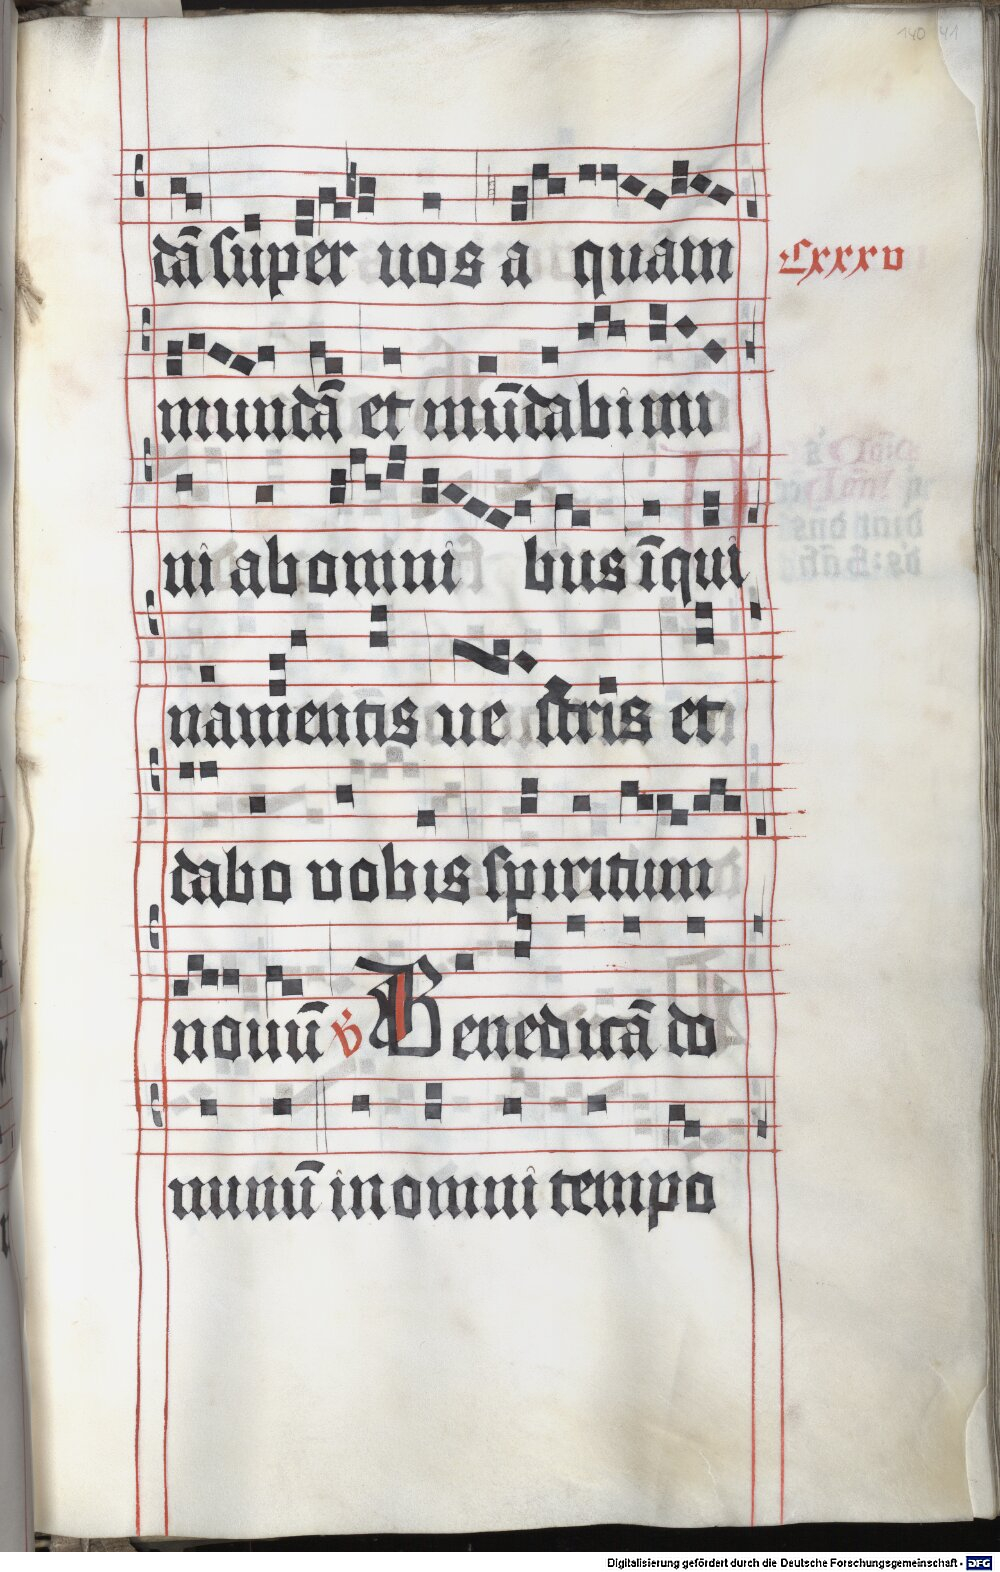 140 41
dā super uos a quam
Lxxxv
mundā et mūdabimi
ni ab omni bus īqui
namentis ue stris et
dabo uobis spiritum
nouū v̇ Benedicā do
minū in omni tempo
Digitalisierung gefördert durch die Deutsche Forschungsgemeinschaft - DFG